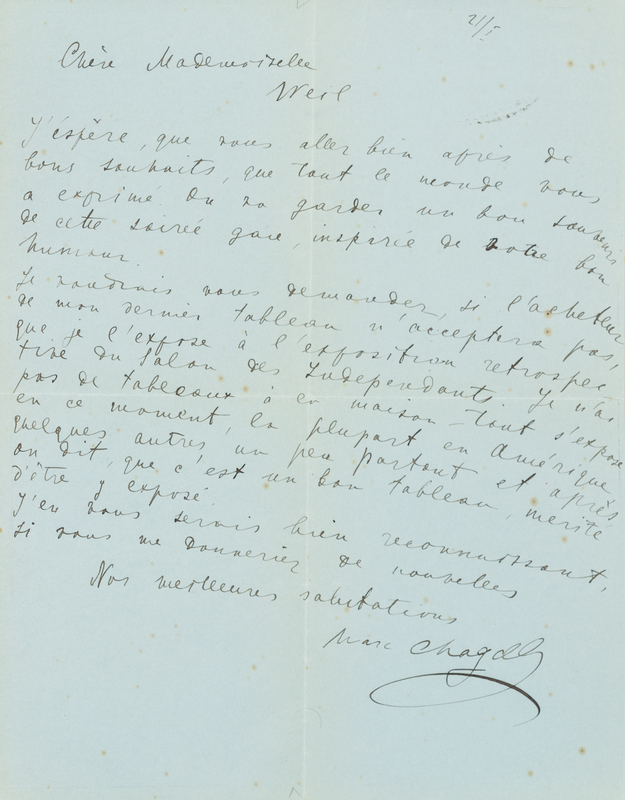 21/5
Chère Mademoiselle
Weil
J'éspêre, que vous aller bien après de
bons souhaits, que tout le monde vous
a exprimé. On va garder un bon souvenir
de cette soireé gaie, inspirié de votre bon
humour.
Je voudrais vous demander, si l'acheteur
de mon dernier tableau n'acceptera pas,
que je l'expose à l'exposition retrospec
tive du Salon des Independants. Je n'ai
pas de tableaux à la maison – tout s'expose
en ce moment, la plupart en Amérique
quelques autres un peu partout et après
on dit, que c'est un bon tableau, merité
d'être y exposé.
J'en vous serais bien reconnaissant,
si vous me donneriez de nouvelles
Nos meilleures salutations
Marc Chagall